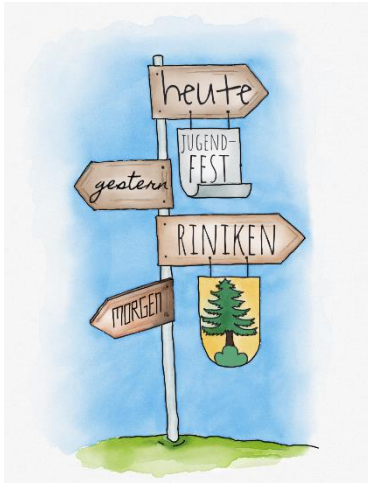 heute
JUGEND-
FEST
gestern
RINIKEN
MORGEN